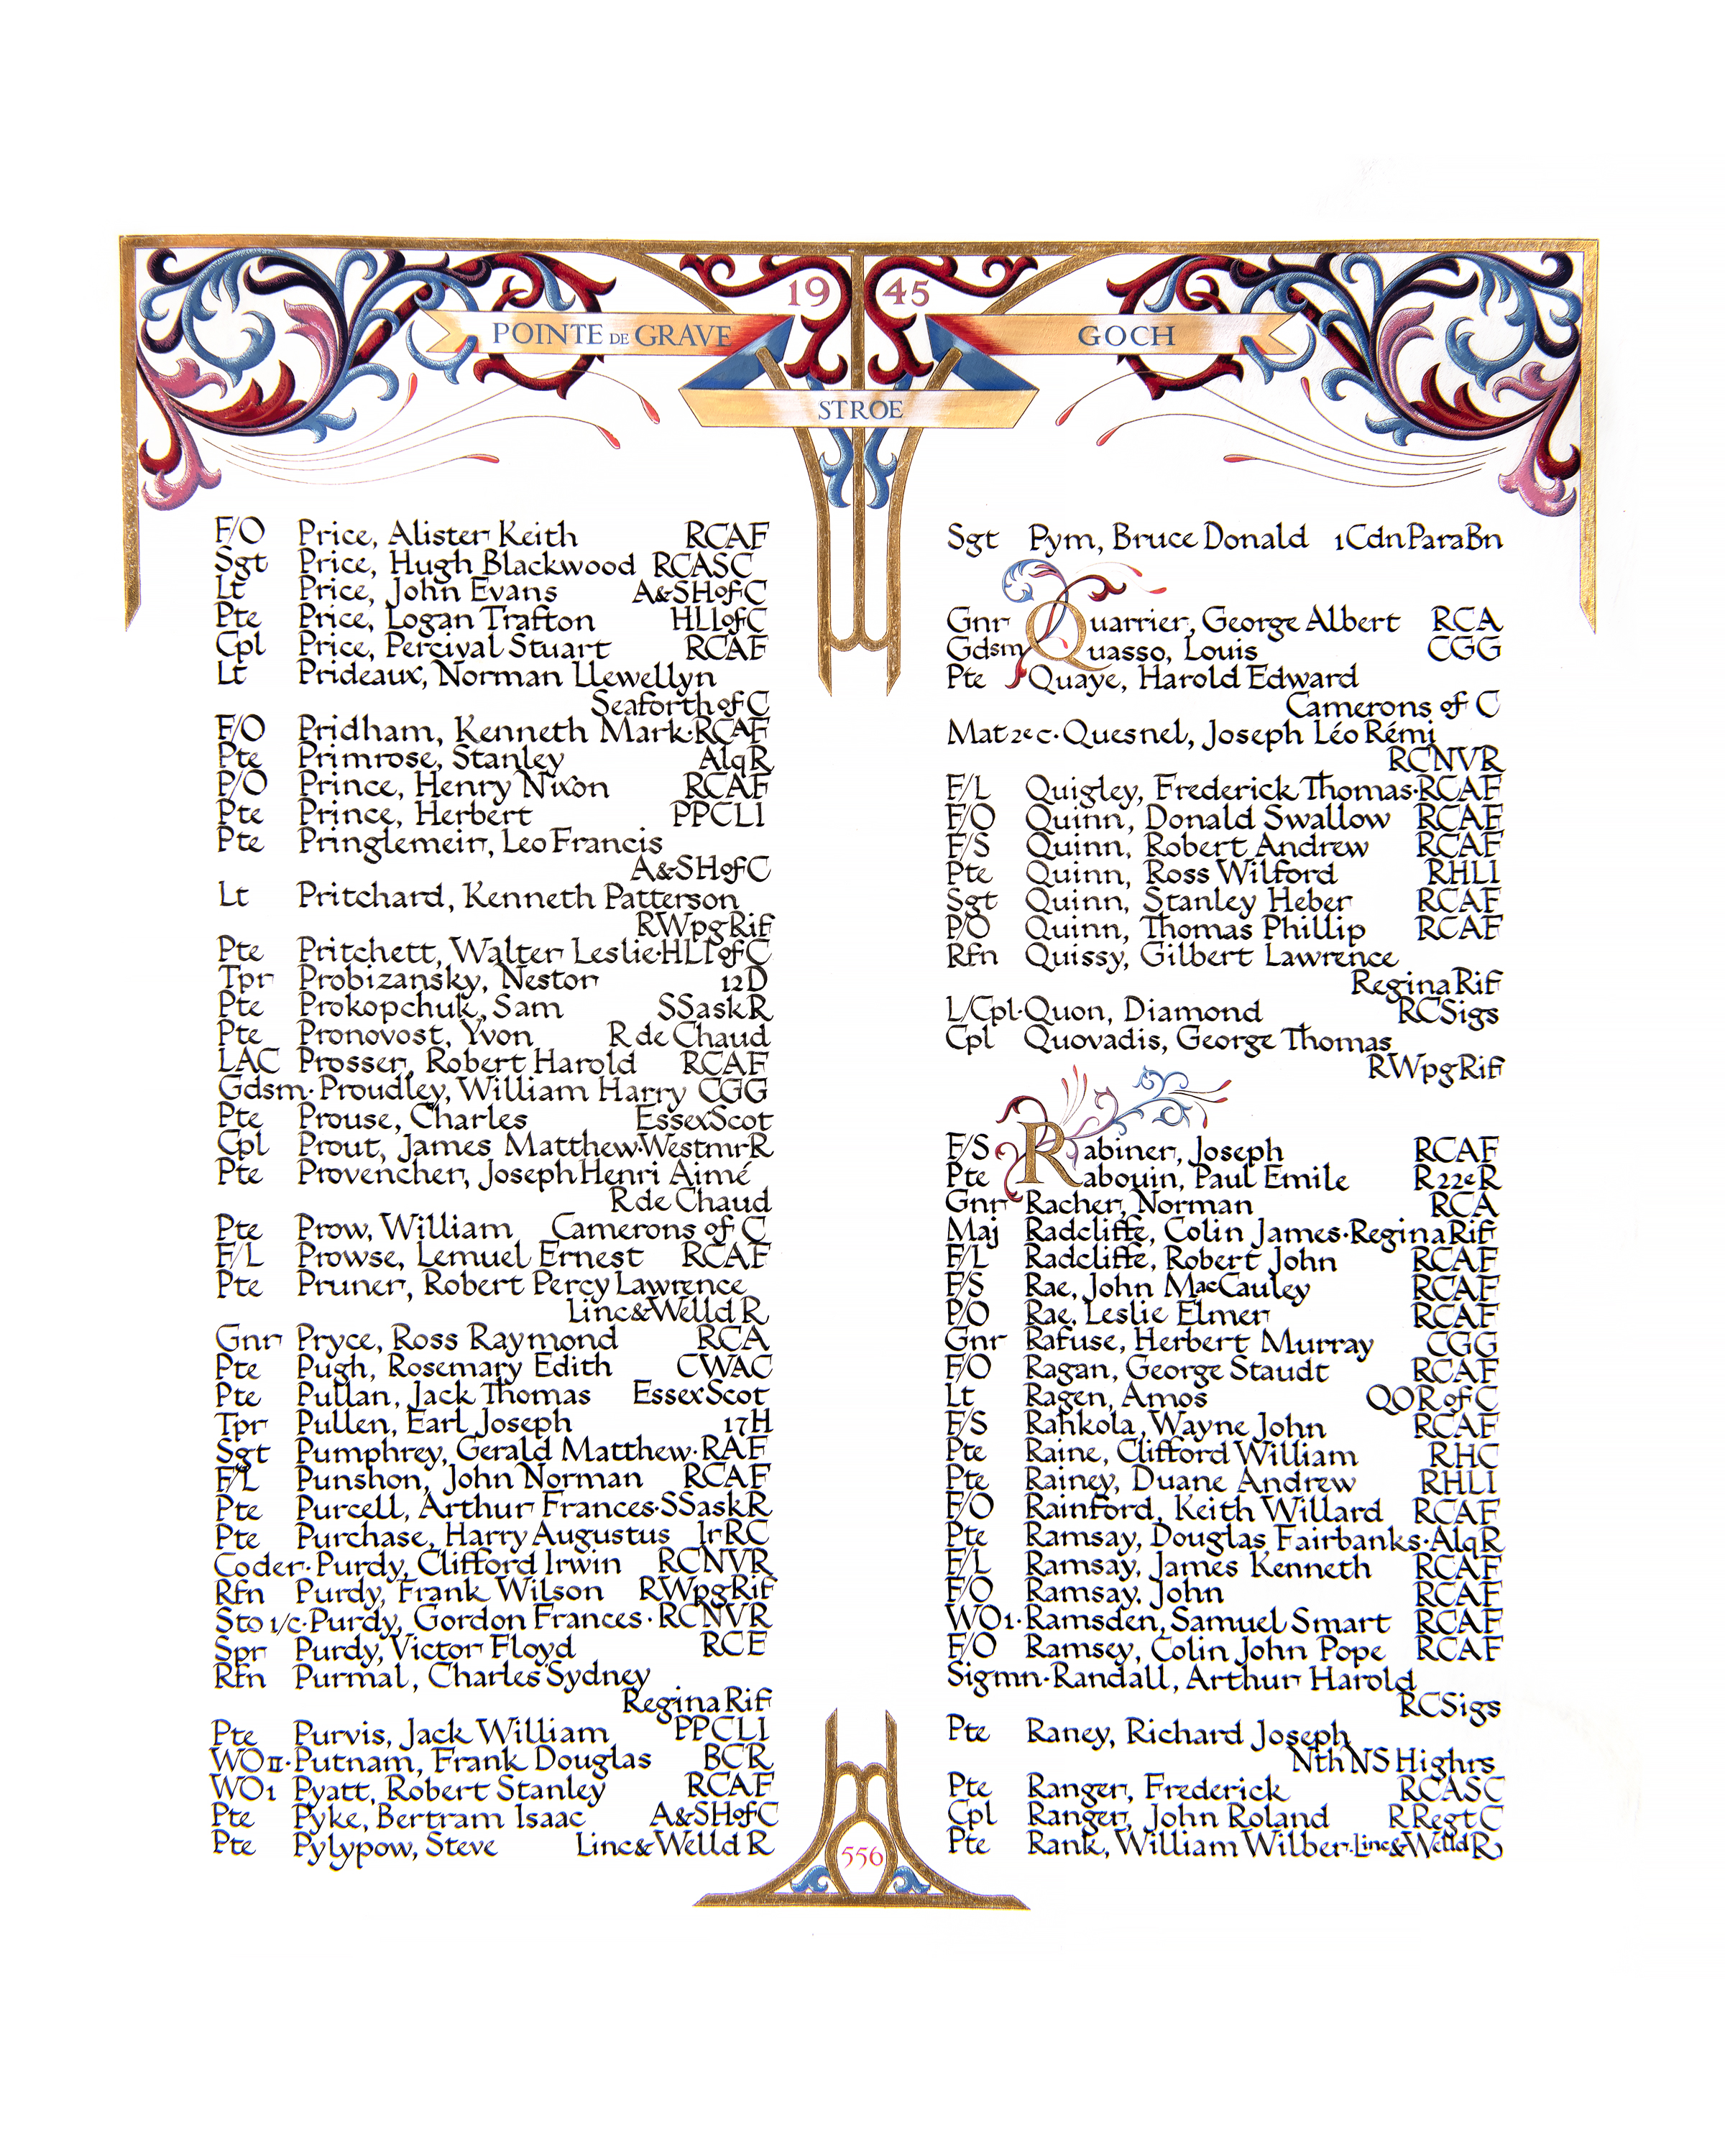 1945
POINTE DE GRAVE
GOCH
STROE
F/O Price, Alister Keith RCAF
Sgt Price, Hugh Blackwood RCASC
Lt Price, John Evans A&SHofC
Pte Price, Logan Trafton HLIofC
Cpl Price, Percival Stuart RCAF
Lt Prideaux, Norman Llewellyn
Seaforth of C
F/O Pridham, Kenneth Mark·RCAF
Pte Primrose, Stanley AlqR
P/O Prince, Henry Nixon RCAF
Pte Prince, Herbert PPCLI
Pte Pringlemeir, Leo Francis
A&SHofC
Lt Pritchard, Kenneth Patterson
RWpgRif
Pte Pritchett, Walter Leslie·HLIofC
Tpr Probizansky, Nestor 12D
Pte Prokopchuk, Sam SSaskR
Pte Pronovost, Yvon R de Chaud
LAC Prosser, Robert Harold RCAF
Gdsm·Proudley, William Harry CGG
Pte Prouse, Charles EssexScot
Cpl Prout, James Matthew·WestmrR
Pte Provencher, Joseph Henri Aimé
R de Chaud
Pte Prow, William Camerons of C
F/L Prowse, Lemuel Ernest RCAF
Pte Pruner, Robert Percy Lawrence
Linc&Welld R
Gnr Pryce, Ross Raymond RCA
Pte Pugh, Rosemary Edith CWAC
Pte Pullan, Jack Thomas EssexScot
Tpr Pullen, Earl Joseph 17H
Sgt Pumphrey, Gerald Matthew·RAF
F/L Punshon, John Norman RCAF
Pte Purcell, Arthur Frances·SSaskR
Pte Purchase, Harry Augustus IrRC
Coder·Purdy, Clifford Irwin RCNVR
Rfn Purdy, Frank Wilson RWpgRif
Sto 1/c·Purdy, Gordon Frances·RCNVR
Spr Purdy, Victor Floyd RCE
Rfn Purmal, Charles Sydney
Regina Rif
Pte Purvis, Jack William PPCLI
WOII·Putnam, Frank Douglas BCR
WO1 Pyatt, Robert Stanley RCAF
Pte Pyke, Bertram Isaac A&SHofC
Pte Pylypow, Steve Linc&Welld R
Sgt Pym, Bruce Donald 1CdnParaBn
Gnr Quarrier, George Albert RCA
Gdsm Quasso, Louis CGG
Pte Quaye, Harold Edward
Camerons of C
Mat 2e c·Quesnel, Joseph Léo Rémi
RCNVR
F/L Quigley, Frederick Thomas·RCAF
F/O Quinn, Donald Swallow RCAF
F/S Quinn, Robert Andrew RCAF
Pte Quinn, Ross Wilford RHLI
Sgt Quinn, Stanley Heber RCAF
P/O Quinn, Thomas Phillip RCAF
Rfn Quissy, Gilbert Lawrence
Regina Rif
L/Cpl·Quon, Diamond RCSigs
Cpl Quovadis, George Thomas
RWpgRif
F/S Rabiner, Joseph RCAF
Pte Rabouin, Paul Emile R22eR
Gnr Racher, Norman RCA
Maj Radcliffe, Colin James·Regina Rif
F/L Radcliffe, Robert John RCAF
F/S Rae, John MacCauley RCAF
P/O Rae, Leslie Elmer RCAF
Gnr Rafuse, Herbert Murray CGG
F/O Ragan, George Staudt RCAF
Lt Ragen, Amos QOR of C
F/S Rahkola, Wayne John RCAF
Pte Raine, Clifford William RHC
Pte Rainey, Duane Andrew RHLI
F/O Rainford, Keith Willard RCAF
Pte Ramsay, Douglas Fairbanks·AlqR
F/L Ramsay, James Kenneth RCAF
F/O Ramsay, John RCAF
WO1·Ramsden, Samuel Smart RCAF
F/O Ramsey, Colin John Pope RCAF
Sigmn·Randall, Arthur Harold
RCSigs
Pte Raney, Richard Joseph
NthNS Highrs
Pte Ranger, Frederick RCASC
Cpl Ranger, John Roland RRegtC
Pte Rank, William Wilber·Linc&Welld R
556